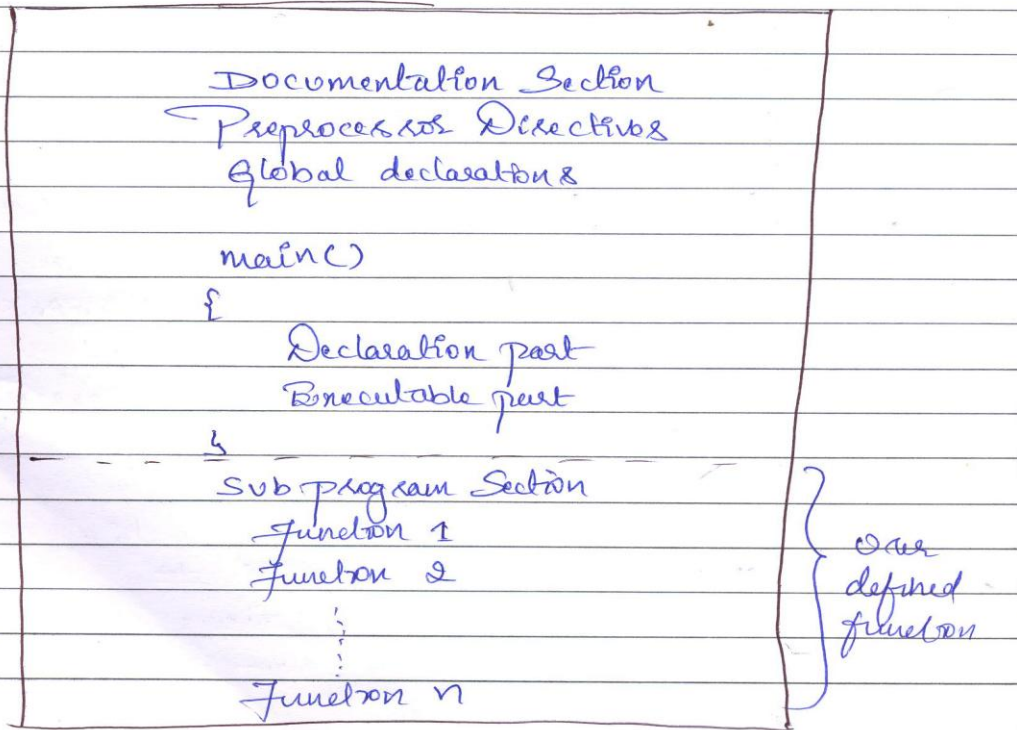 Documentation Section
Preprocessor Directives
Global declarations
main()
{
Declaration part
Executable part
}
Sub program Section
Function 1
Function 2
Function n
defined
function